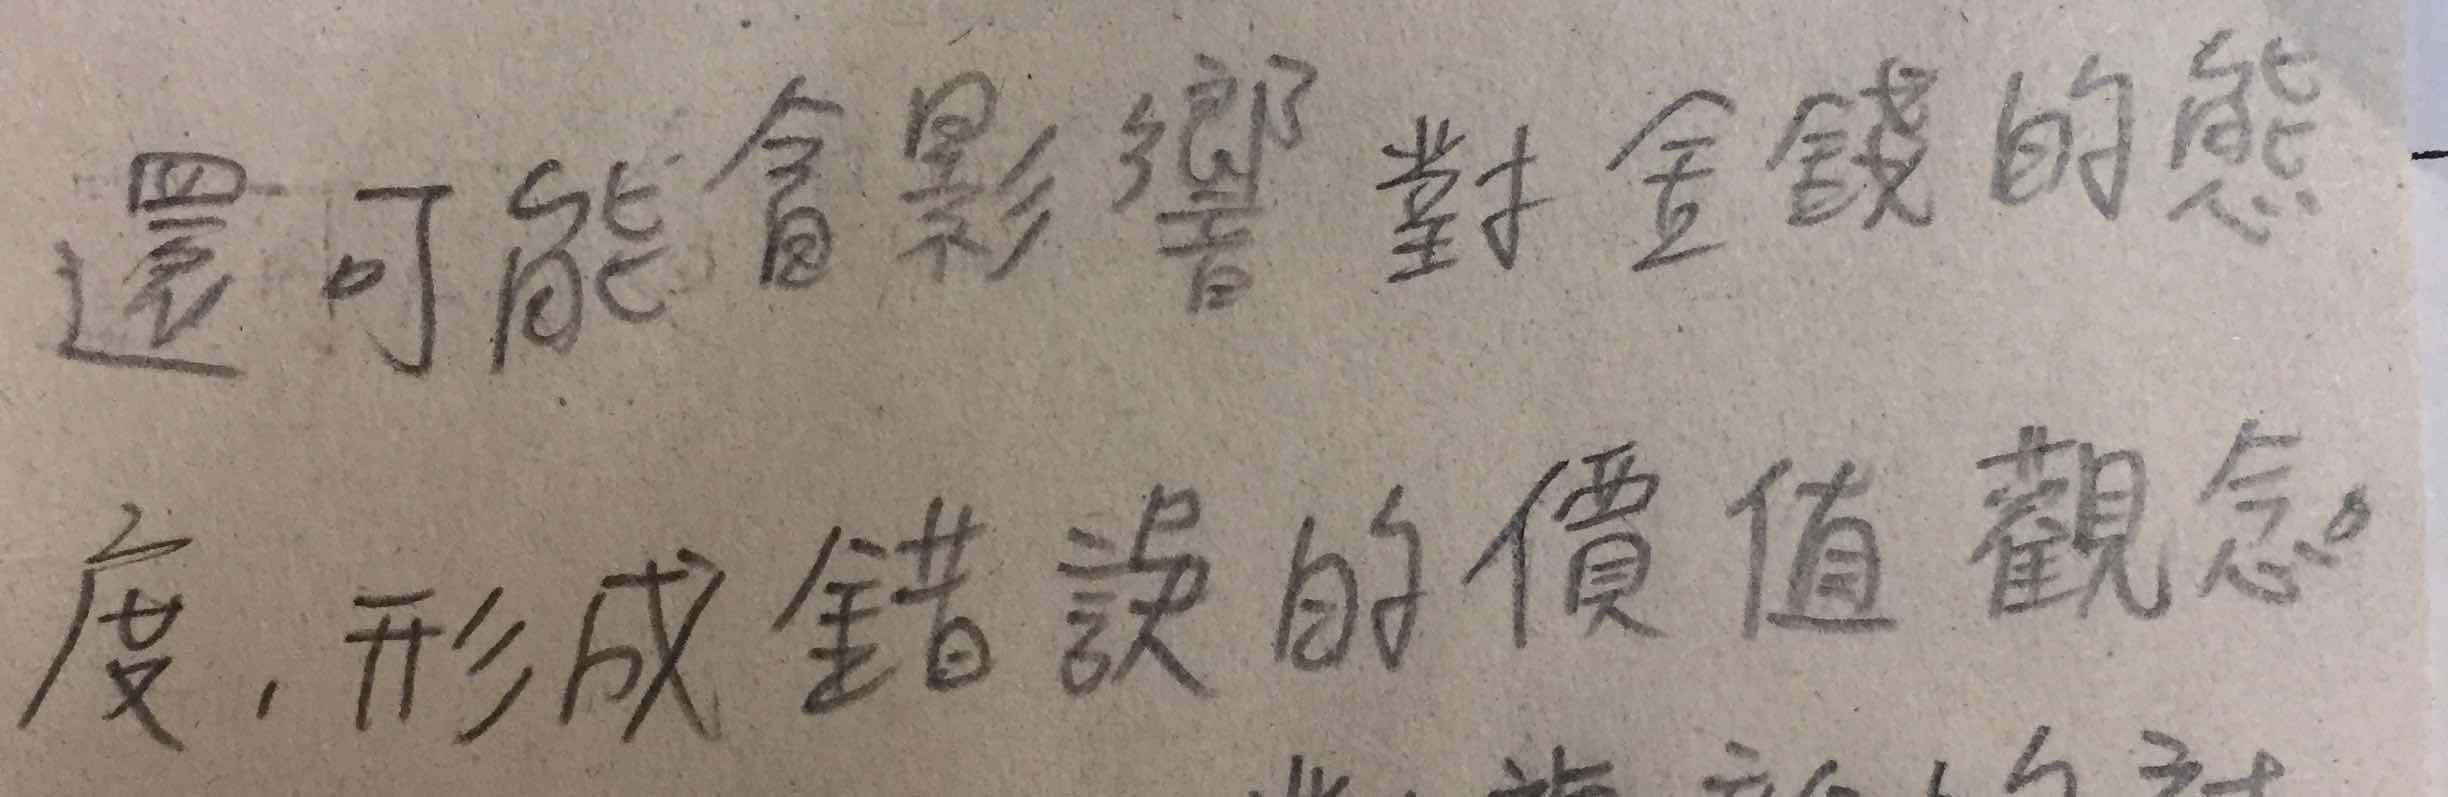 還可能會影響對金錢的態
度,形成錯誤的價值觀念。